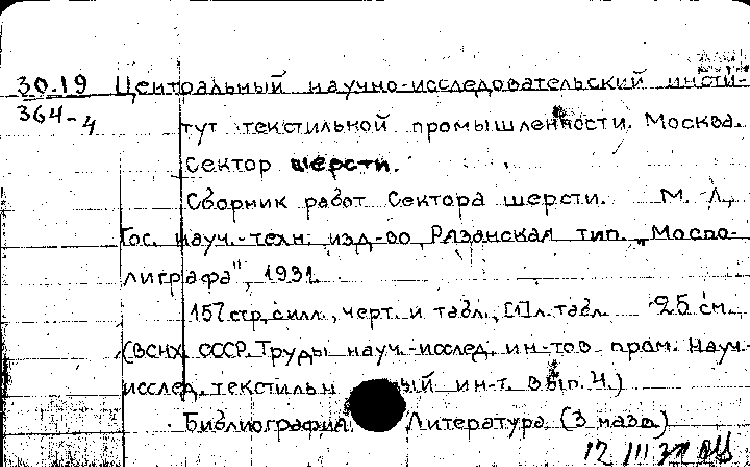 30.19 Центральный научно-исследовательский инсти-
364-4 тут текстильной промышленности. Москва.
Сектор шерсти.
Сборник работ Сектора шерсти. М. Л.,
Гос. науч.-техн. изд-во, Рязанская тип. „Моспо-
лиграфа", 1931.
157 стр. с илл., черт. и табл., [1] л. табл. 25 см.
(ВСНХ СССР. Труды науч.-исслед. ин-тов пром. Науч.-
исслед. текстильн ый ин-т. Вып. 4.)
Библиография: Литература (3 назв.)
12 III 32